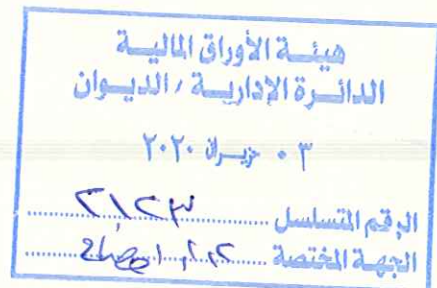 هيئـة الأوراق المالية
الدائـرة الإداريـة / الديـوان
٠٣ حزيران ٢٠٢٠
الرقم المتسلسل ٢١٢٣
الجهة المختصة